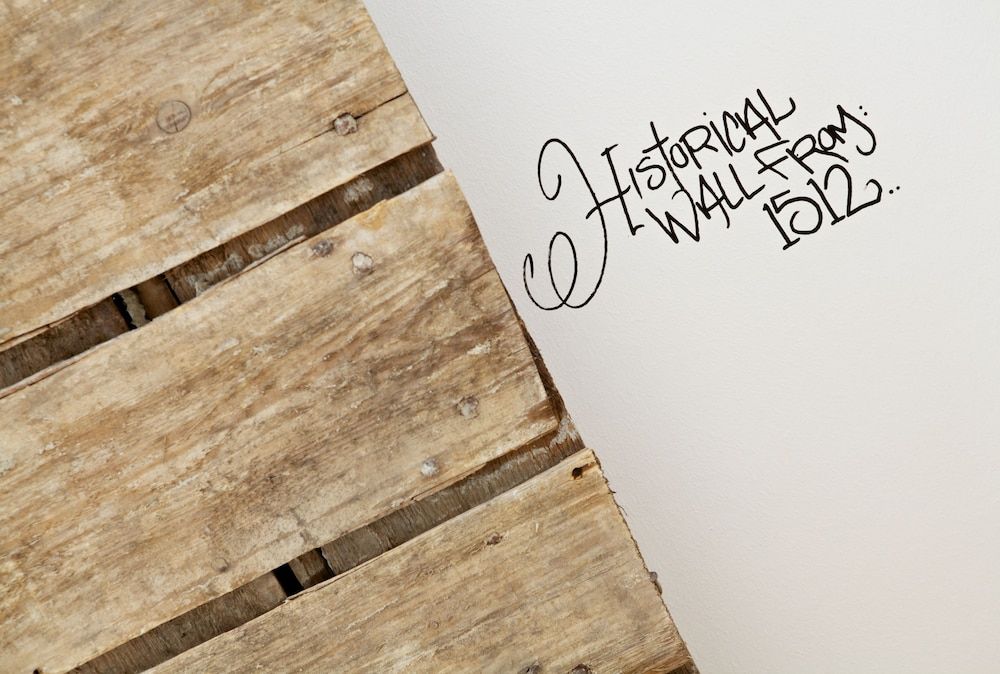 HISTORICAL
WALL FROM:
1512..